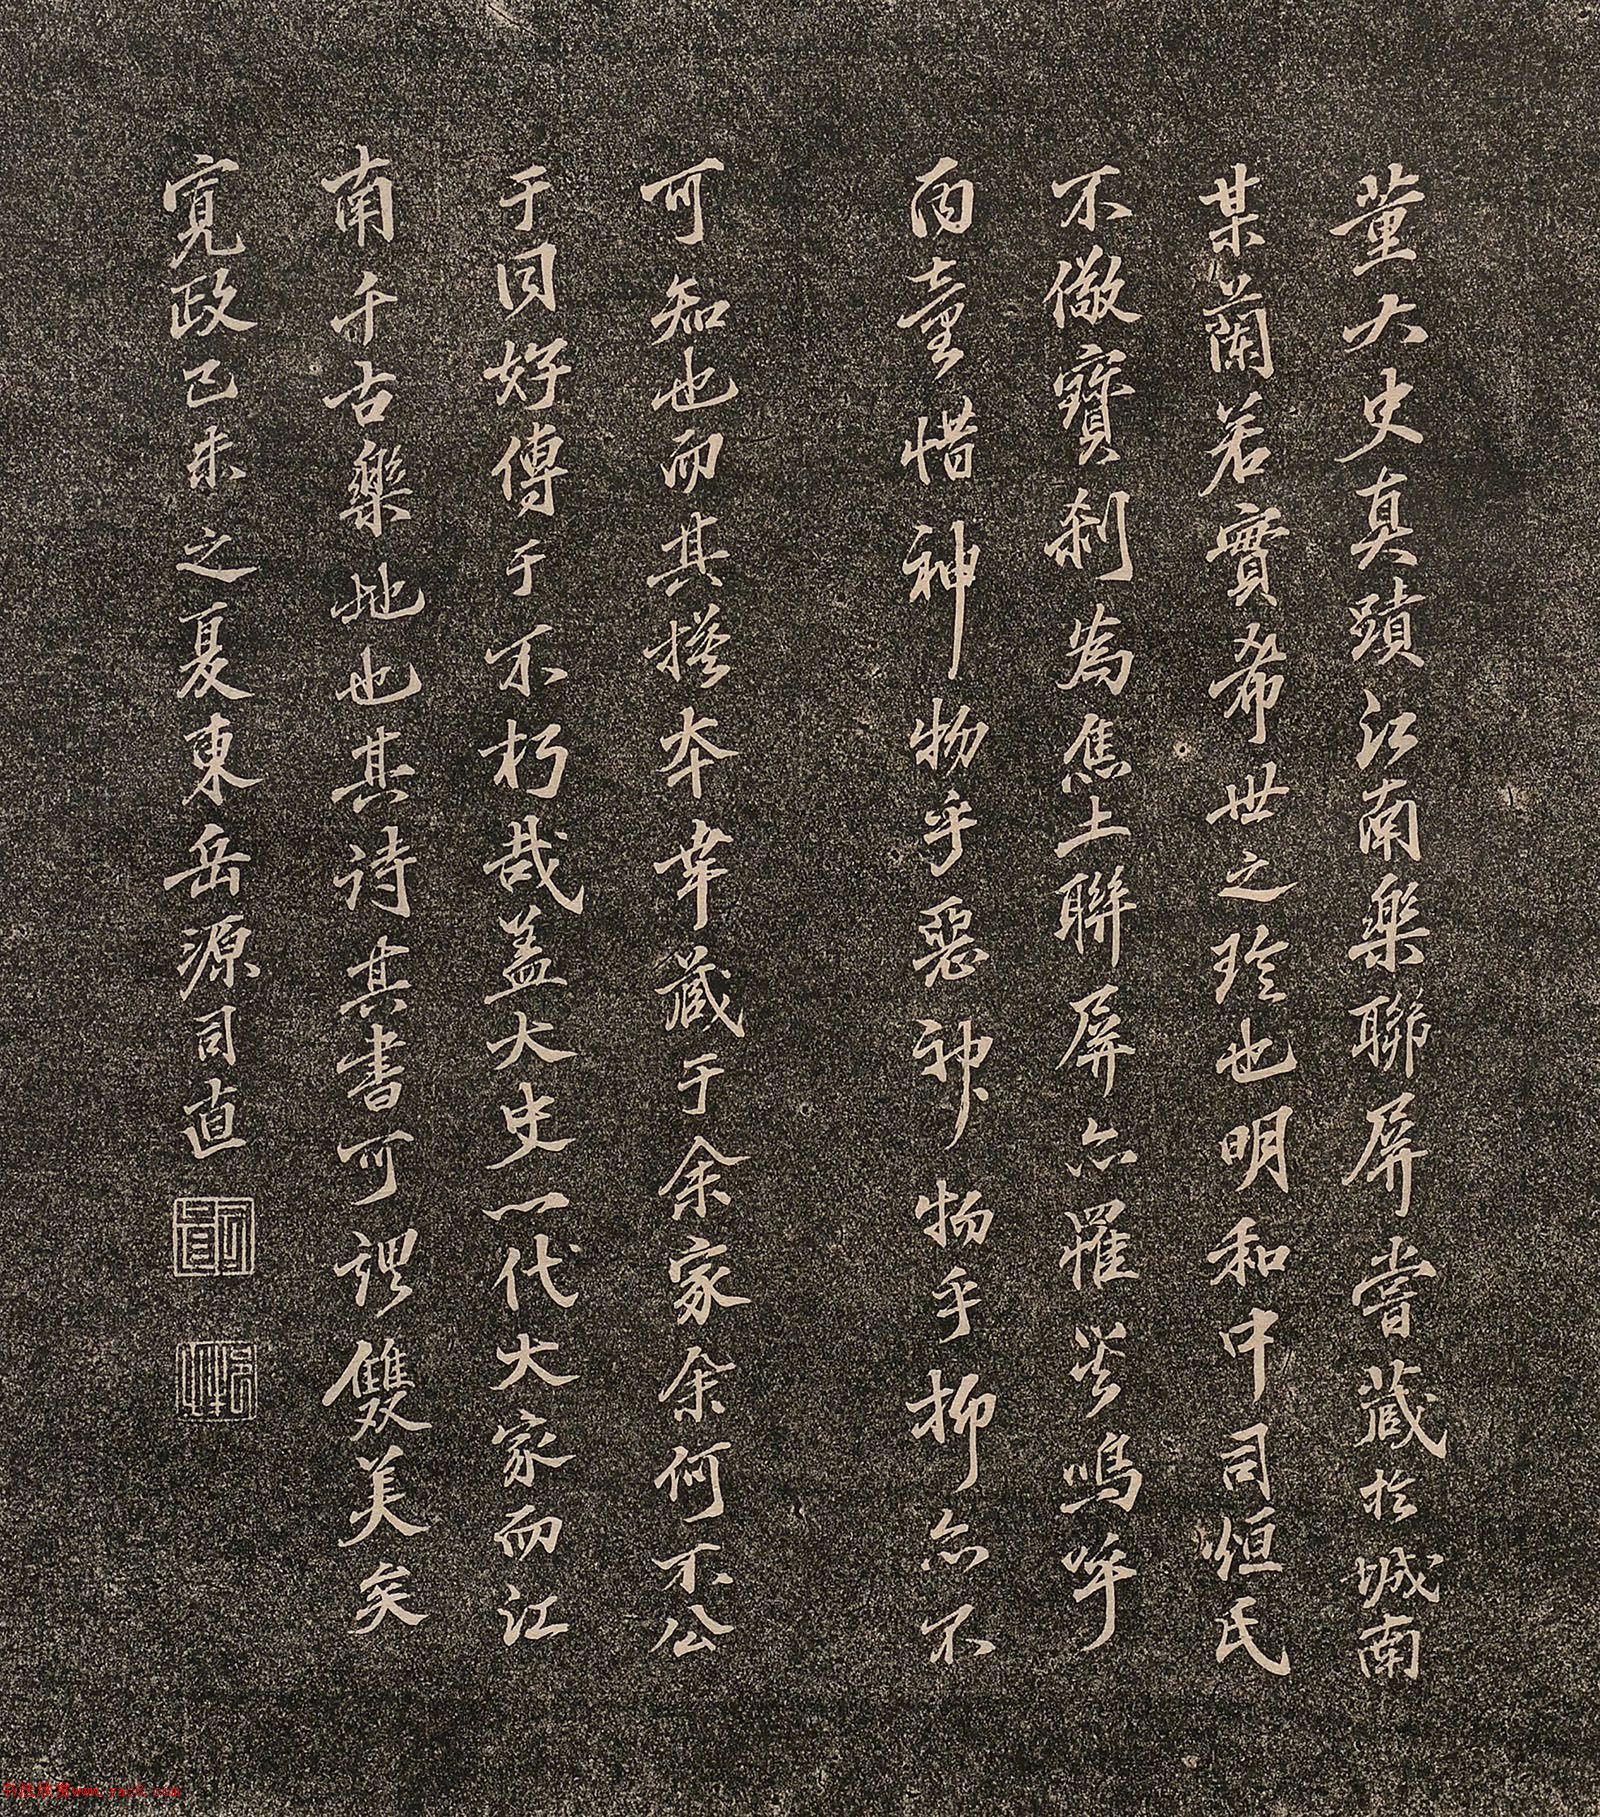 董太史真蹟江南樂聯屏嘗藏於城南
某蘭若實希世之珍也明和中司烜氏
不儆寶刹為焦土聯屏亦罹災嗚呼
丙童惜神物乎惡神物乎抑亦不
可知也而其搨本幸藏于余家余何不公
于同好傳于不朽哉蓋太史一代大家而江
南千古樂地也其詩其書可謂雙美矣
寬政己未之夏東岳源司直
www.yac8.com